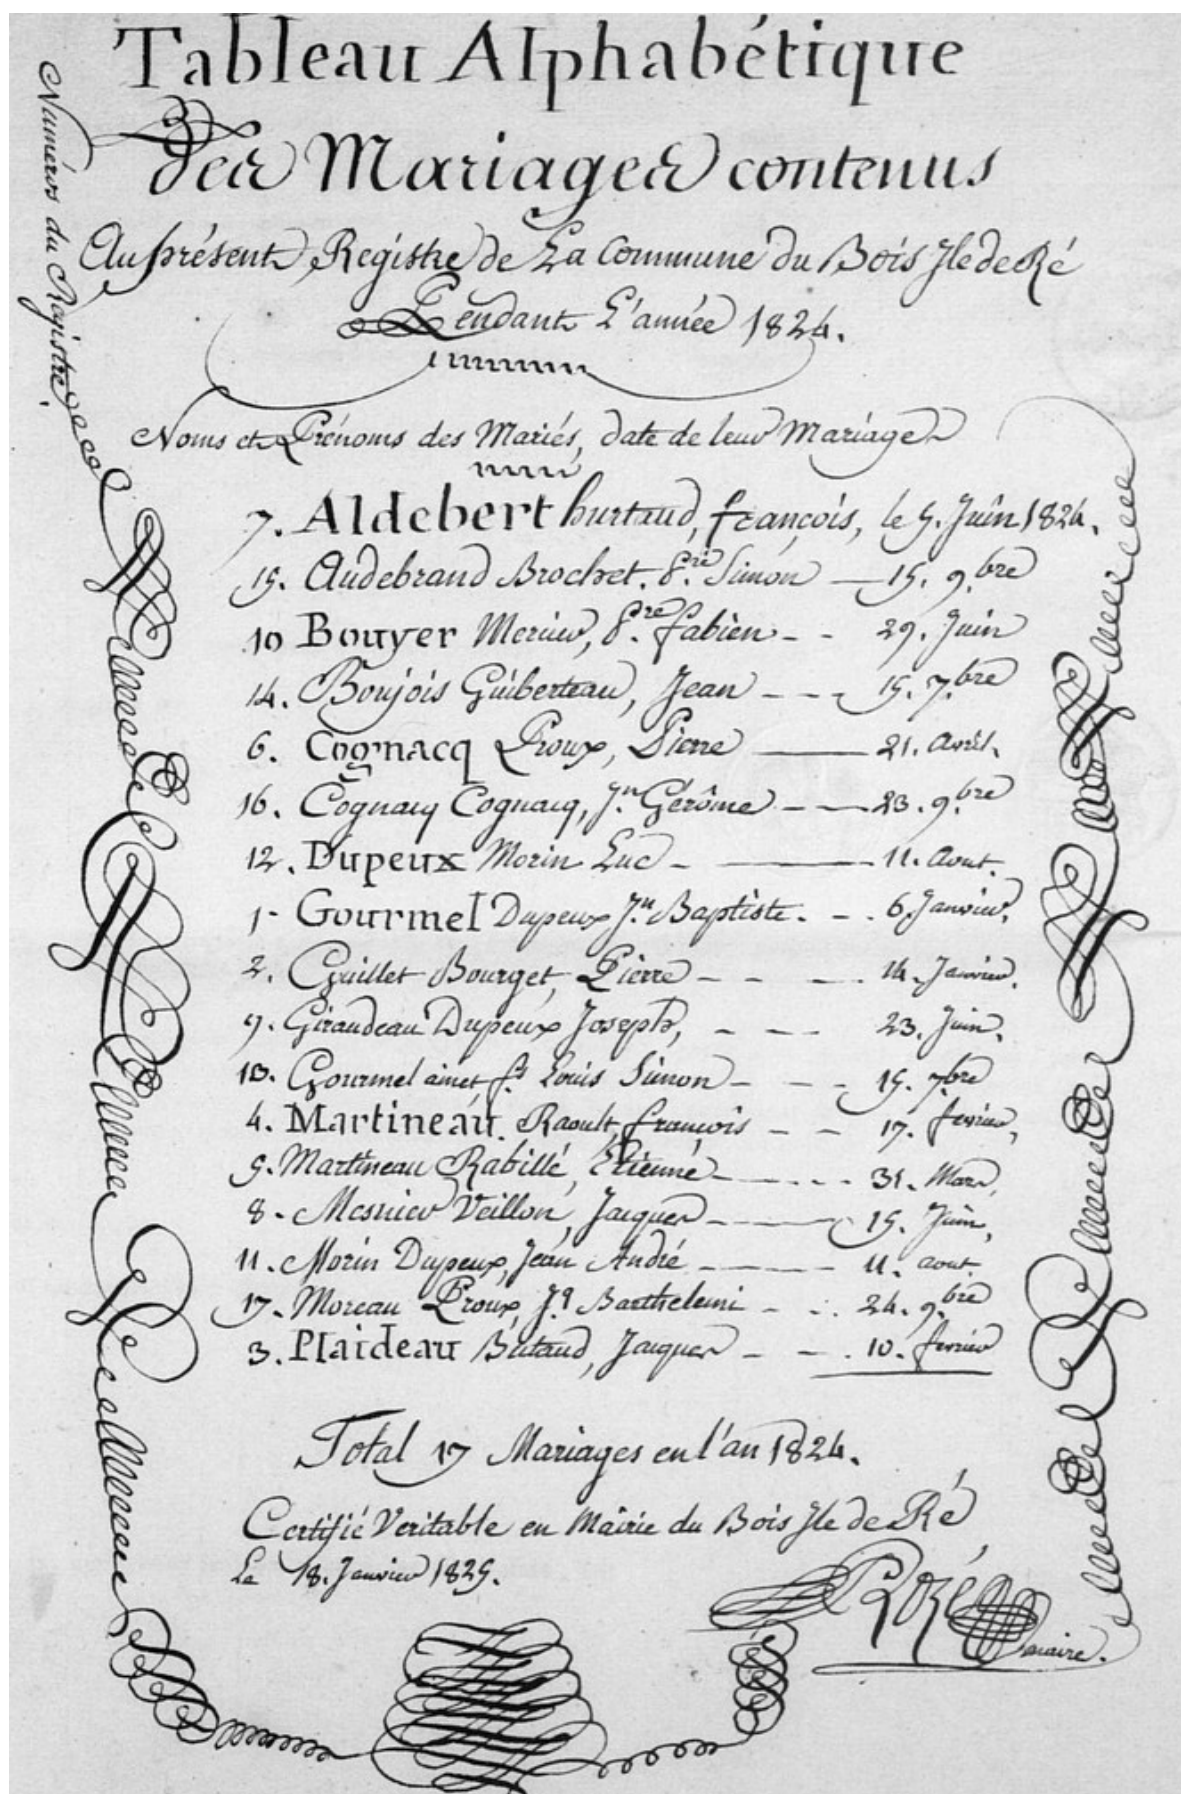 Tableau Alphabétique
des Mariages contenus
Au présent Régistre de La Commune du Bois Ile de Ré
Pendant L'année 1824.
Numéros du Registre.
Noms et Prénoms des Mariés, date de leur Mariage
7. Aldebert hurtaud, françois, le 5. Juin 1824.
15. Audebrand Brochet. Simon 15. 9.bre
10 Bouyer Merieu, fabien 29. Juin
14. Boujois Guiberteau, Jean 15. 7.bre
6. Cognacq Proux, Pierre 21. Avril.
16. Cognacq Cognacq, Jn. Gérôme 23. 9.bre
12. Dupeux Morin Luc 11. Aout.
1 Gourmel Dupeux Jn. Baptiste. 6. Janvier.
2. Guillet Bourget, Pierre 14. Janvier.
9. Giraudeau Dupeux Joseph, 23. Juin.
13. Gourmel Louis Simon 15. 7bre
4. Martineau. Raoult, françois 17. fevrier,
5. Martineau Rabillé, Etienne 31. Mars,
8. Mesnier Veillon, Jacques 15. Juin,
11. Morin Dupeux, Jean André 11. aout.
17. Moreau Proux, Jq. Barthelemi 24. 9.bre
3. Plaideau Jacques 10. fevrier
Total 17 Mariages en l'an 1824.
Certifié Veritable en Mairie du Bois Ile de Ré
Le 18. Janvier 1825.
Rozé
maire.